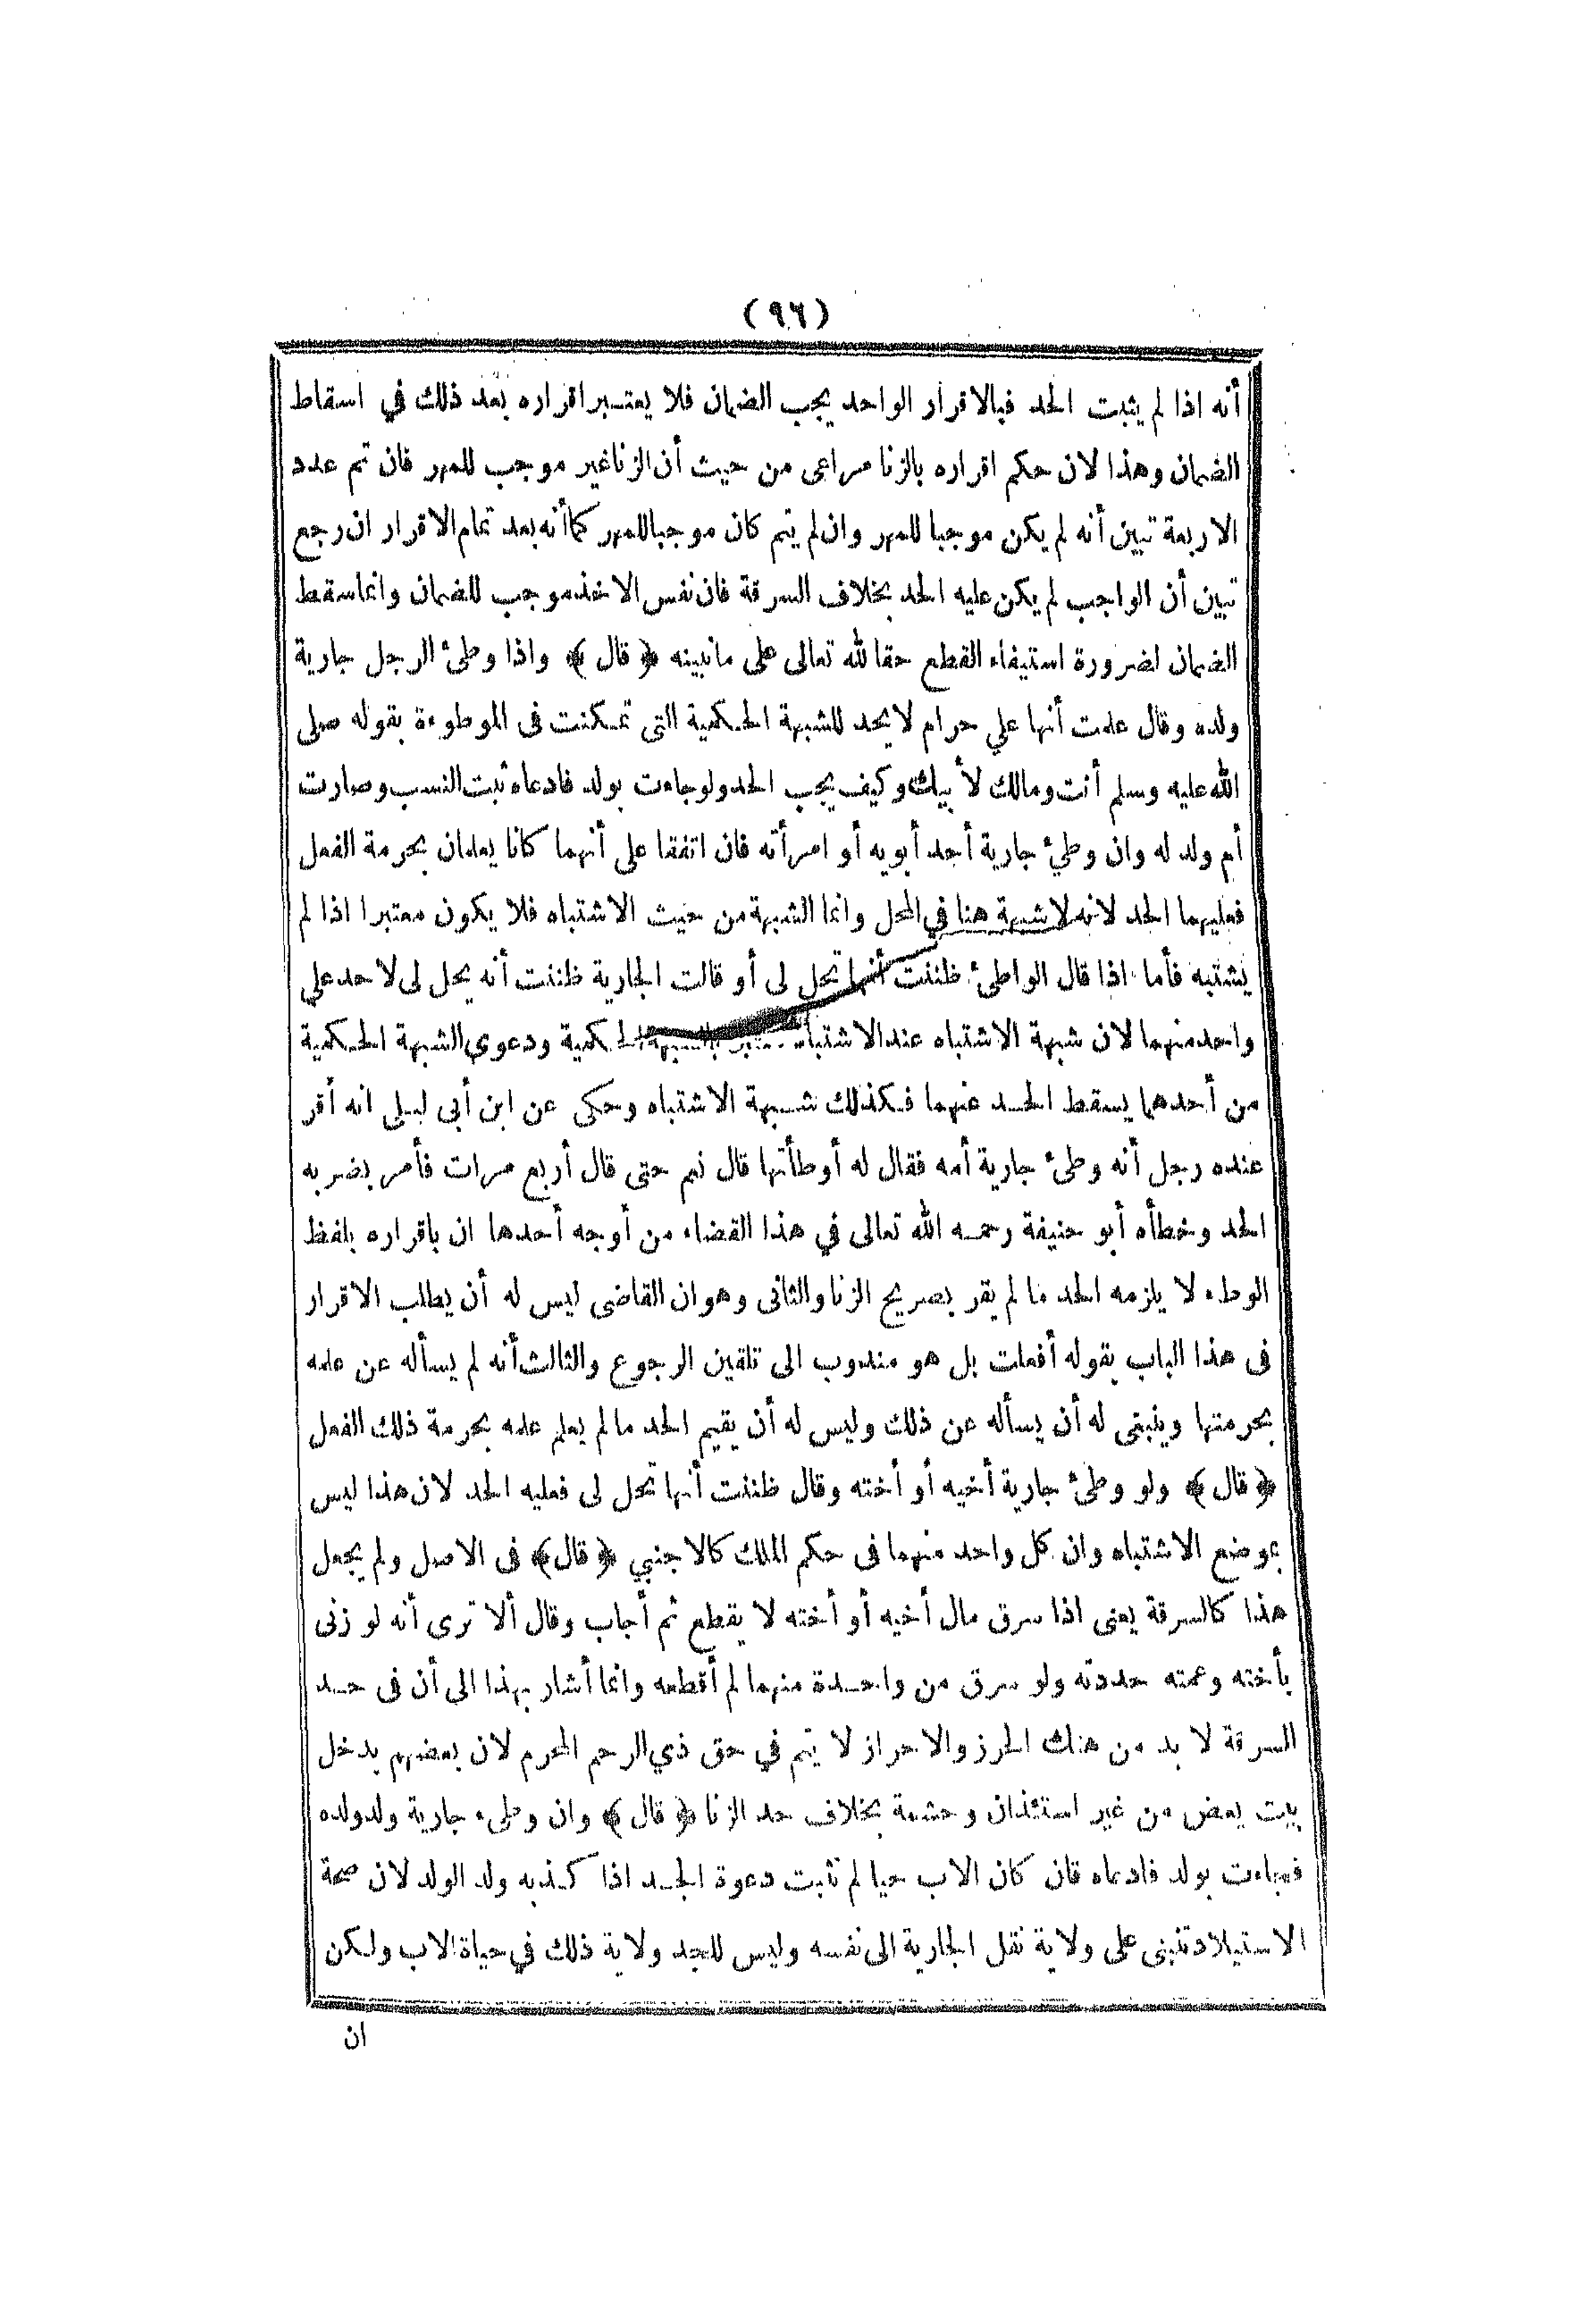 (٩٦)
أنه اذا لم يثبت الحد فبالاقرار الواحد يجب الضمان فلا يعتبر اقراره بعد ذلك في اسقاط
الضمان وهذا لان حكم اقراره بالزنا مراعى من حيث أن الزنا غير موجب للمهر فان تم عدد
الاربعة تبين أنه لم يكن موجبا للمهر وان لم يتم كان موجبا للمهر كما أنه بعد تمام الاقرار ان رجع
تبين أن الواجب لم يكن عليه الحد بخلاف السرقة فان نفس الاخذ موجب للضمان وانما سقط
الضمان لضرورة استيفاء القطع حقا لله تعالى على ما نبينه ﴿ قال ﴾ واذا وطئ الرجل جارية
ولده وقال علمت أنها علي حرام لا يحد للشبهة الحكمية التى تمكنت فى الموطوءة بقوله صلى
الله عليه وسلم أنت ومالك لأبيك وكيف يجب الحد ولو جاءت بولد فادعاه ثبت النسب وصارت
أم ولد له وان وطئ جارية أحد أبويه أو امرأته فان اتفقا على أنهما كانا يعلمان بحرمة الفعل
فعليهما الحد لانه لا شبهة هنا في المحل وانما الشبهة من حيث الاشتباه فلا يكون معتبرا اذا لم
يشتبه فأما اذا قال الواطئ ظننت أنها تحل لى أو قالت الجارية ظننت أنه يحل لى لا حد علي
واحد منهما لان شبهة الاشتباه عند الاشتباه معتبر بالشبهة الحكمية ودعوي الشبهة الحكمية
من أحدهما يسقط الحد عنهما فكذلك شبهة الاشتباه وحكى عن ابن أبى ليلى انه أقر
عنده رجل أنه وطئ جارية أمه فقال له أوطأتها قال نعم حتى قال أربع مرات فأمر بضربه
الحد وخطأه أبو حنيفة رحمه الله تعالى في هذا القضاء من أوجه أحدها ان باقراره بلفظ
الوطء لا يلزمه الحد ما لم يقر بصريح الزنا والثانى وهو ان القاضى ليس له أن يطلب الاقرار
فى هذا الباب بقوله أفعلت بل هو مندوب الى تلقين الرجوع والثالث أنه لم يسأله عن علمه
بحرمتها وينبغى له أن يسأله عن ذلك وليس له أن يقيم الحد ما لم يعلم علمه بحرمة ذلك الفعل
﴿ قال ﴾ ولو وطئ جارية أخيه أو أخته وقال ظننت أنها تحل لى فعليه الحد لان هذا ليس
بموضع الاشتباه وان كل واحد منهما فى حكم الملك كالاجنبي ﴿ قال﴾ فى الاصل ولم يجعل
هذا كالسرقة يعنى اذا سرق مال أخيه أو أخته لا يقطع ثم أجاب وقال ألا ترى أنه لو زنى
بأخته وعمته حددته ولو سرق من واحدة منهما لم أقطعه وانما أشار بهذا الى أن فى حد
السرقة لا بد من هتك الحرز والاحراز لا يتم في حق ذي الرحم المحرم لان بعضهم يدخل
بيت بعض من غير استئذان وحشمة بخلاف حد الزنا ﴿ قال ﴾ وان وطىء جارية ولد ولده
فجاءت بولد فادعاه فان كان الاب حيا لم تثبت دعوة الجد اذا كذبه ولد الولد لان صحة
الاستيلاد تنبنى على ولاية نقل الجارية الى نفسه وليس للجد ولاية ذلك في حياة الاب ولكن
ان